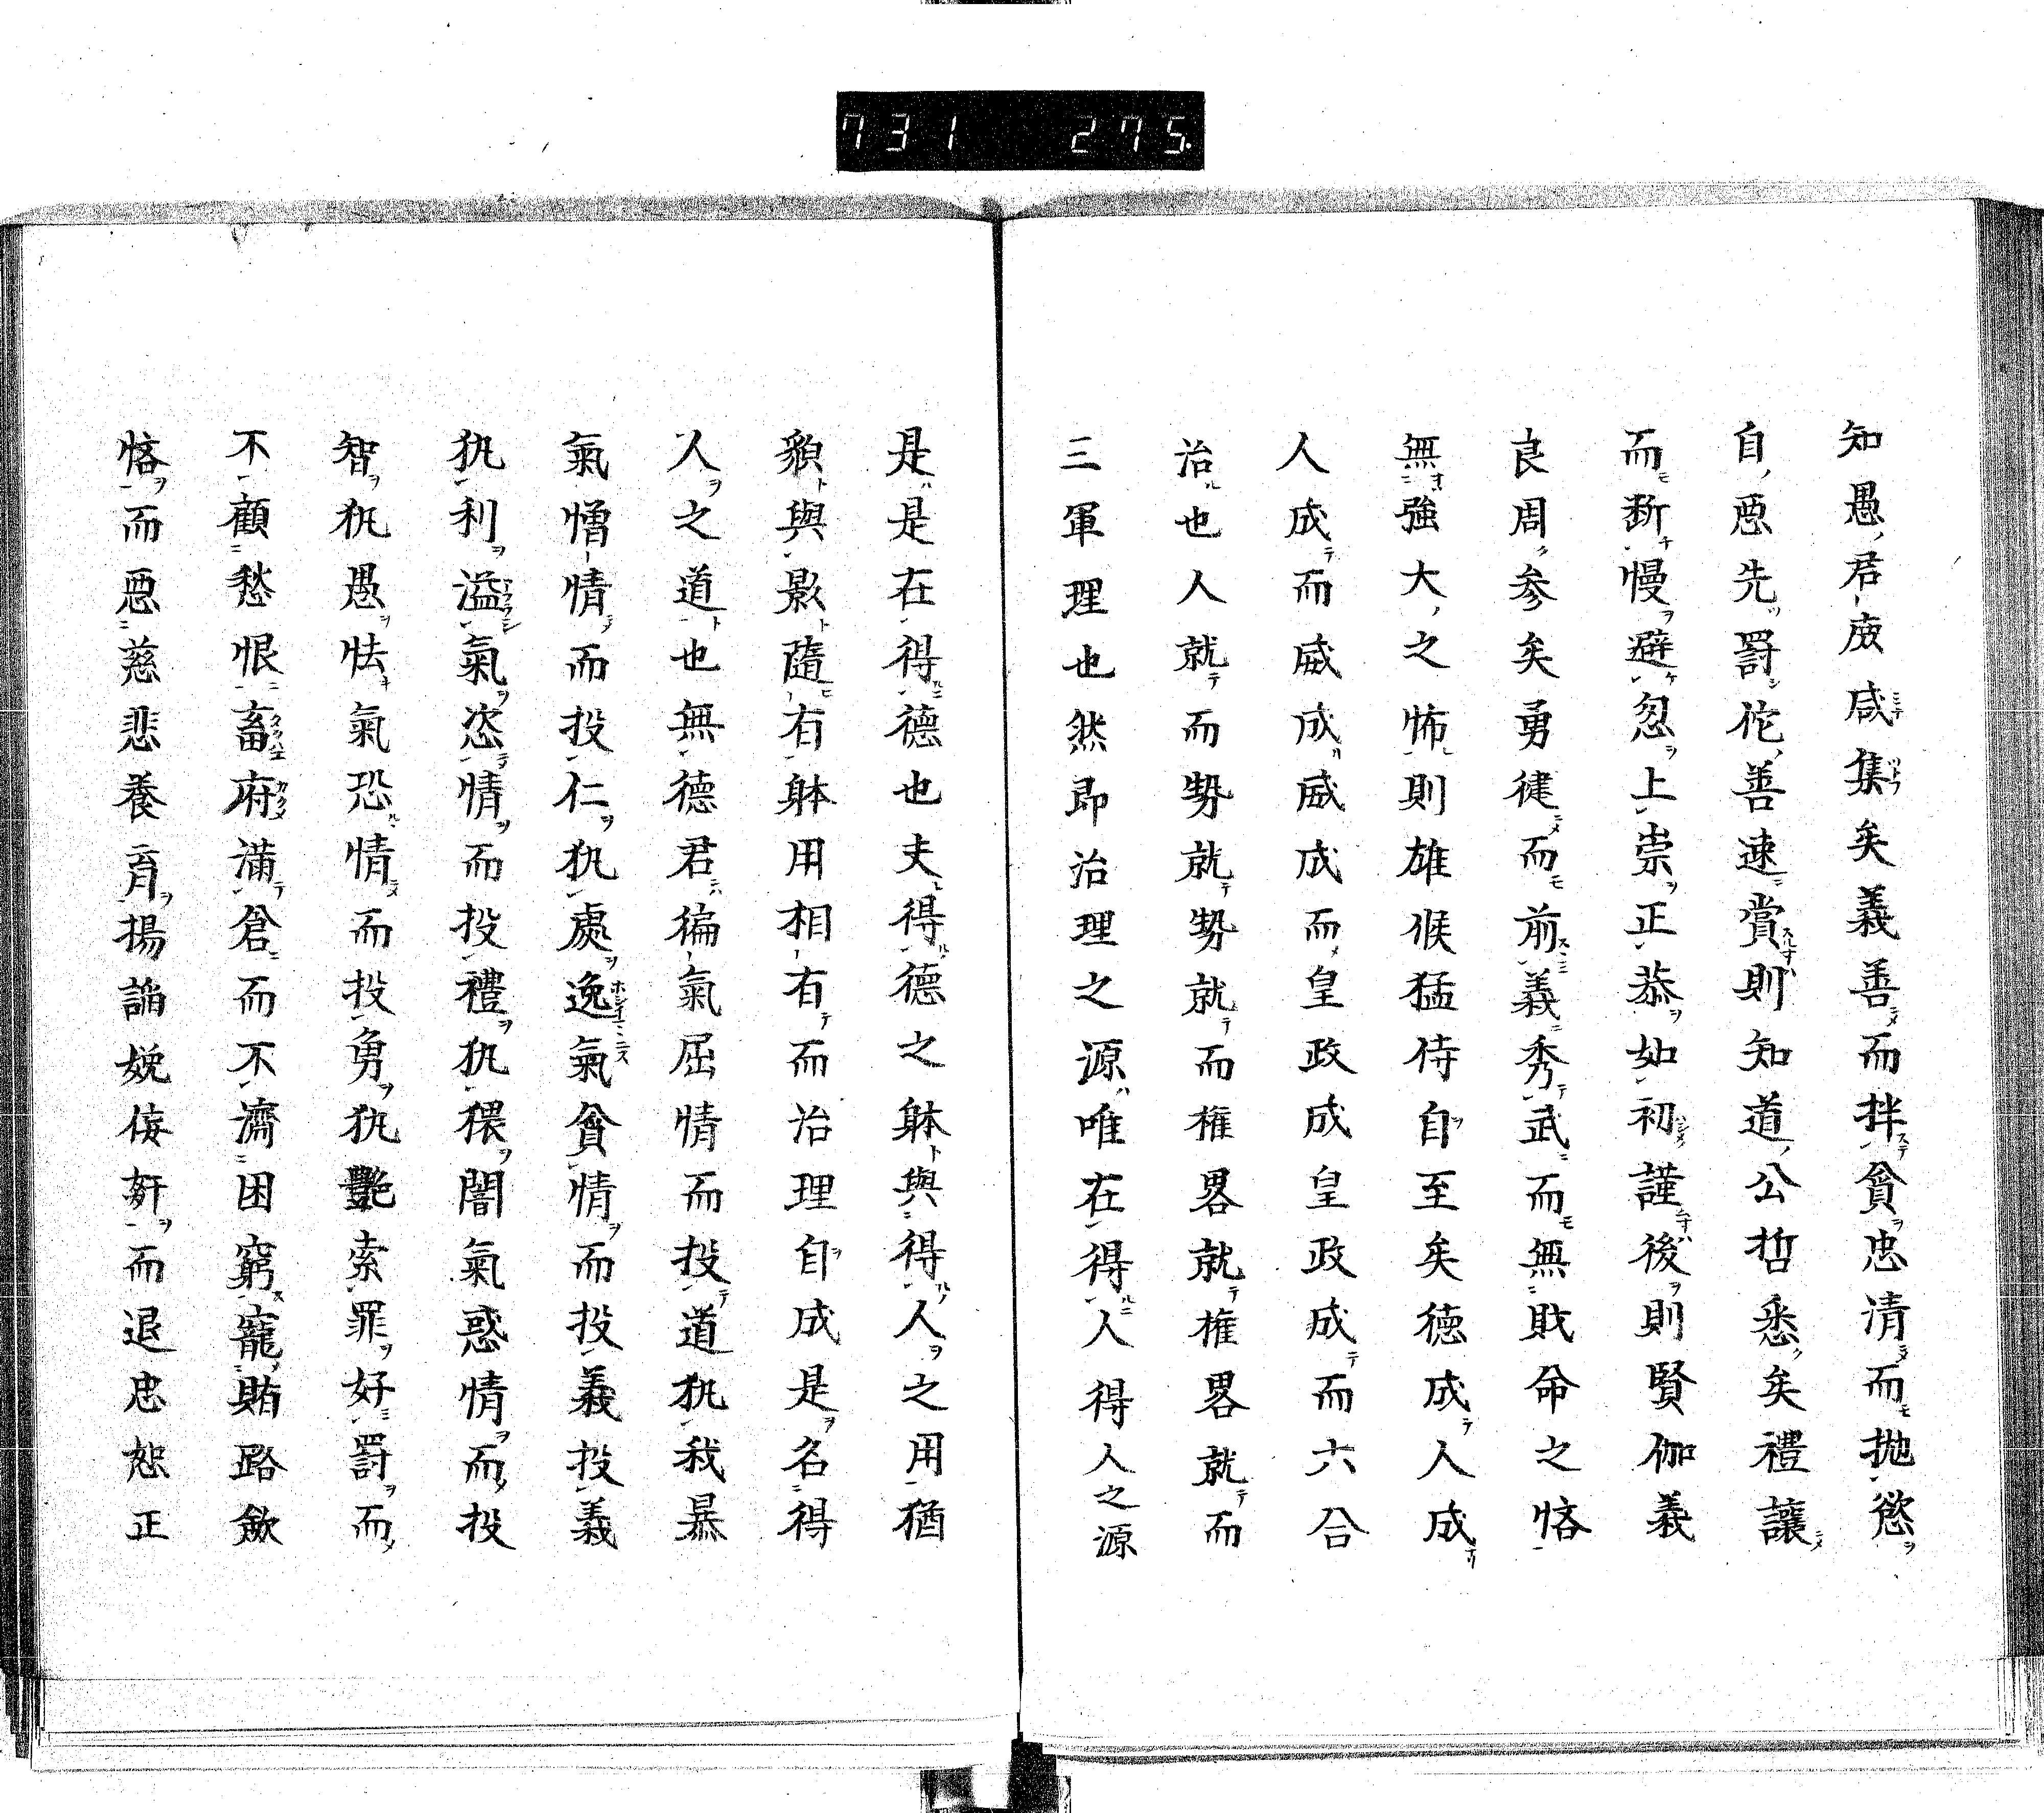 731 275.
知愚君庶咸集矣義善而拌貧忠清而抛慾
自惡先罰佗善速賞則知道公哲悉矣禮讓
而断慢避忽上崇正恭如初謹後則賢伽義
良周参矣勇健而前義秀武而無敗命之悋
無強大之怖則雄候猛侍自至矣徳成人成
人成而威成威成而皇政成皇政成而六合
治也人就而勢就勢就而権畧就権畧就而
三軍理也然即治理之源唯在得人得人之源
是是在得德也夫得德之躰與得人之用猶
貌與影隨有躰用相有而治理自成是名得
人之道也無德君徧氣屈情而投道執我暴
氣憎情而投仁執處逸氣貪情而投義投義
執利溢氣恣情而投禮執猥闇氣惑情而投
智執愚怯氣恐情而投勇執艷索罪好罰而
不顧愁恨畜府滿倉而不濟困窮寵賄路斂
悋而惡慈悲養育揚謟娧侫奸而退忠恕正